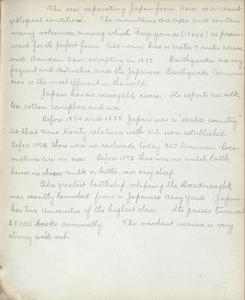 The sea separating Japan from Asia is a recent
geological condition. The mountains are capes and contain
many volcanoes, among which Fujiyama is preem-
inent for its perfect form. Aso-san has a crater 7 miles across
and Bandai-San, erupting in 1888. Earthquakes are
frequent and destructive, and the Japanese Earthquake Comm-
ission is the most efficient in the world.
Japan has no navigable rivers. Its exports are silk,
tea, cotton, camphor and
Before 1854 and 1855 Japan was a "sealed country"
At that time treaty relations with U.S. were established.
Before 1872 there were no railroads, today 900 American loco-
motives are in use. Before 1873 there were no milch cattle,
hence no cheese, milk or butter, nor any sheep.
The greatest battleship, eclipsing the Dreadnought,
was recently launched from a Japanese Navy Yard. Japan
has two universities of the highest class. Its presses turn out
25000 books annually. The merchant marine is very
strong and rich